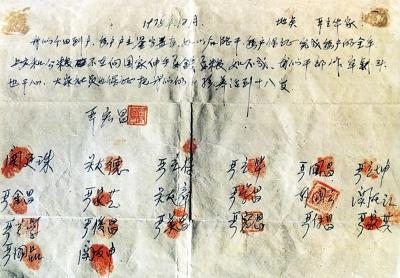 1978年12月 地点 严立华家
我们分田到户,每户户主签字盖章,如以后能干,每户保证完成每户的全年
上交和公粮,不在向国家伸手要钱要粮。如不成,我们干部作牢刹头
也干心,大家社员也保证把我们的小孩养活到十八岁
严宏昌
关廷珠 关友德 严立付 严立华 严国昌 严立坤
严金昌 严家芝 关友章 严学昌 韩国云 关友江
严立学 严俊昌 严美昌 严付昌 严家其
严国品 关友申